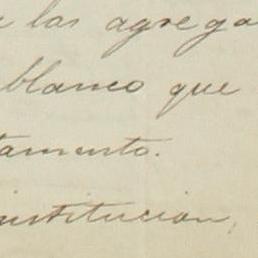 las agrega
blanco que
tamento.
institucion,